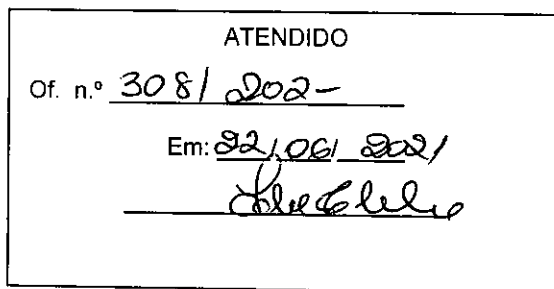 ATENDIDO
Of. n.º 308/ 202-
Em: 22/06/2021